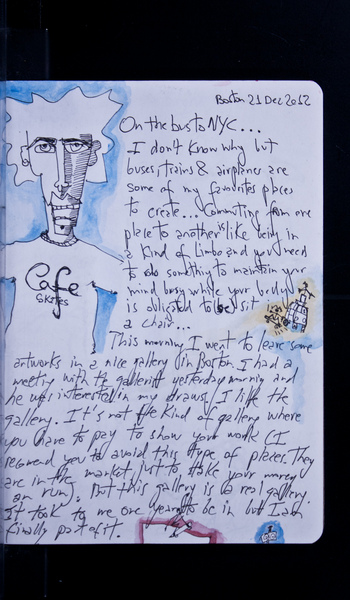 Boston 21 Dec 2012
On the bus to NYC...
I don't know why but
buses, trains & airplanes are
some of my favorites places
to create... Commuting from one
place to another is like being in
a kind of limbo and you need
to do somthing to maintain your
mind busy while your body
is obligated to be sit
a chair...
Cafe
SKATES
This morning I went to leave some
artworks in a nice gallery in Boston. I had a
meeting with the gallerist yesterday morning and
he was interested in my draws. I like the
gallery. It's not the kind of gallery where
you have to pay to show your work (I
recomend you to avoid this type of places. They
are in the market just to take your money
an run). But this gallery is a real gallery.
It took to me one year to be in but I am
finally part of it.